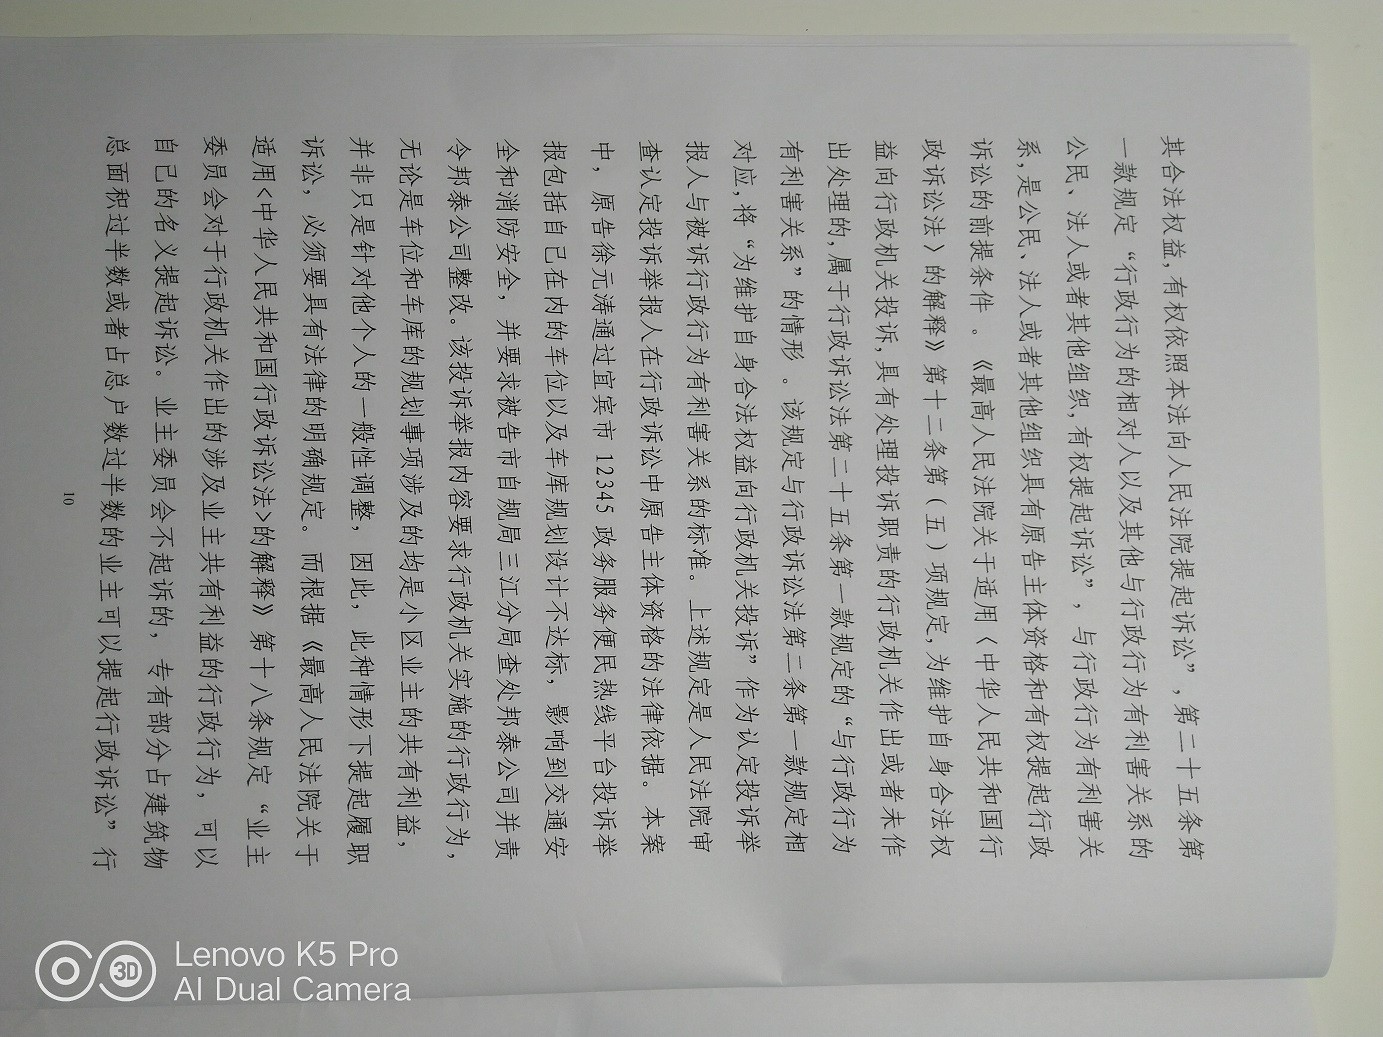 其合法权益,有权依照本法向人民法院提起诉讼”,第二十五条第
一款规定“行政行为的相对人以及其他与行政行为有利害关系的
公民、法人或者其他组织,有权提起诉讼”,与行政行为有利害关
系,是公民、法人或者其他组织具有原告主体资格和有权提起行政
诉讼的前提条件。《最高人民法院关于适用〈中华人民共和国行
政诉讼法〉的解释》第十二条第(五)项规定,为维护自身合法权
益向行政机关投诉,具有处理投诉职责的行政机关作出或者未作
出处理的,属于行政诉讼法第二十五条第一款规定的“与行政行为
有利害关系”的情形。该规定与行政诉讼法第二条第一款规定相
对应,将“为维护自身合法权益向行政机关投诉”作为认定投诉举
报人与被诉行政行为有利害关系的标准。上述规定是人民法院审
查认定投诉举报人在行政诉讼中原告主体资格的法律依据。本案
中,原告徐元涛通过宜宾市12345政务服务便民热线平台投诉举
报包括自己在内的车位以及车库规划设计不达标,影响到交通安
全和消防安全,并要求被告市自规局三江分局查处邦泰公司并责
令邦泰公司整改。该投诉举报内容要求行政机关实施的行政行为,
无论是车位和车库的规划事项涉及的均是小区业主的共有利益,
并非只是针对他个人的一般性调整,因此,此种情形下提起履职
诉讼,必须要具有法律的明确规定。而根据《最高人民法院关于
适用<中华人民共和国行政诉讼法>的解释》第十八条规定“业主
委员会对于行政机关作出的涉及业主共有利益的行政行为,可以
自己的名义提起诉讼。业主委员会不起诉的,专有部分占建筑物
总面积过半数或者占总户数过半数的业主可以提起行政诉讼”行
10
Lenovo K5 Pro
AI Dual Camera
3D